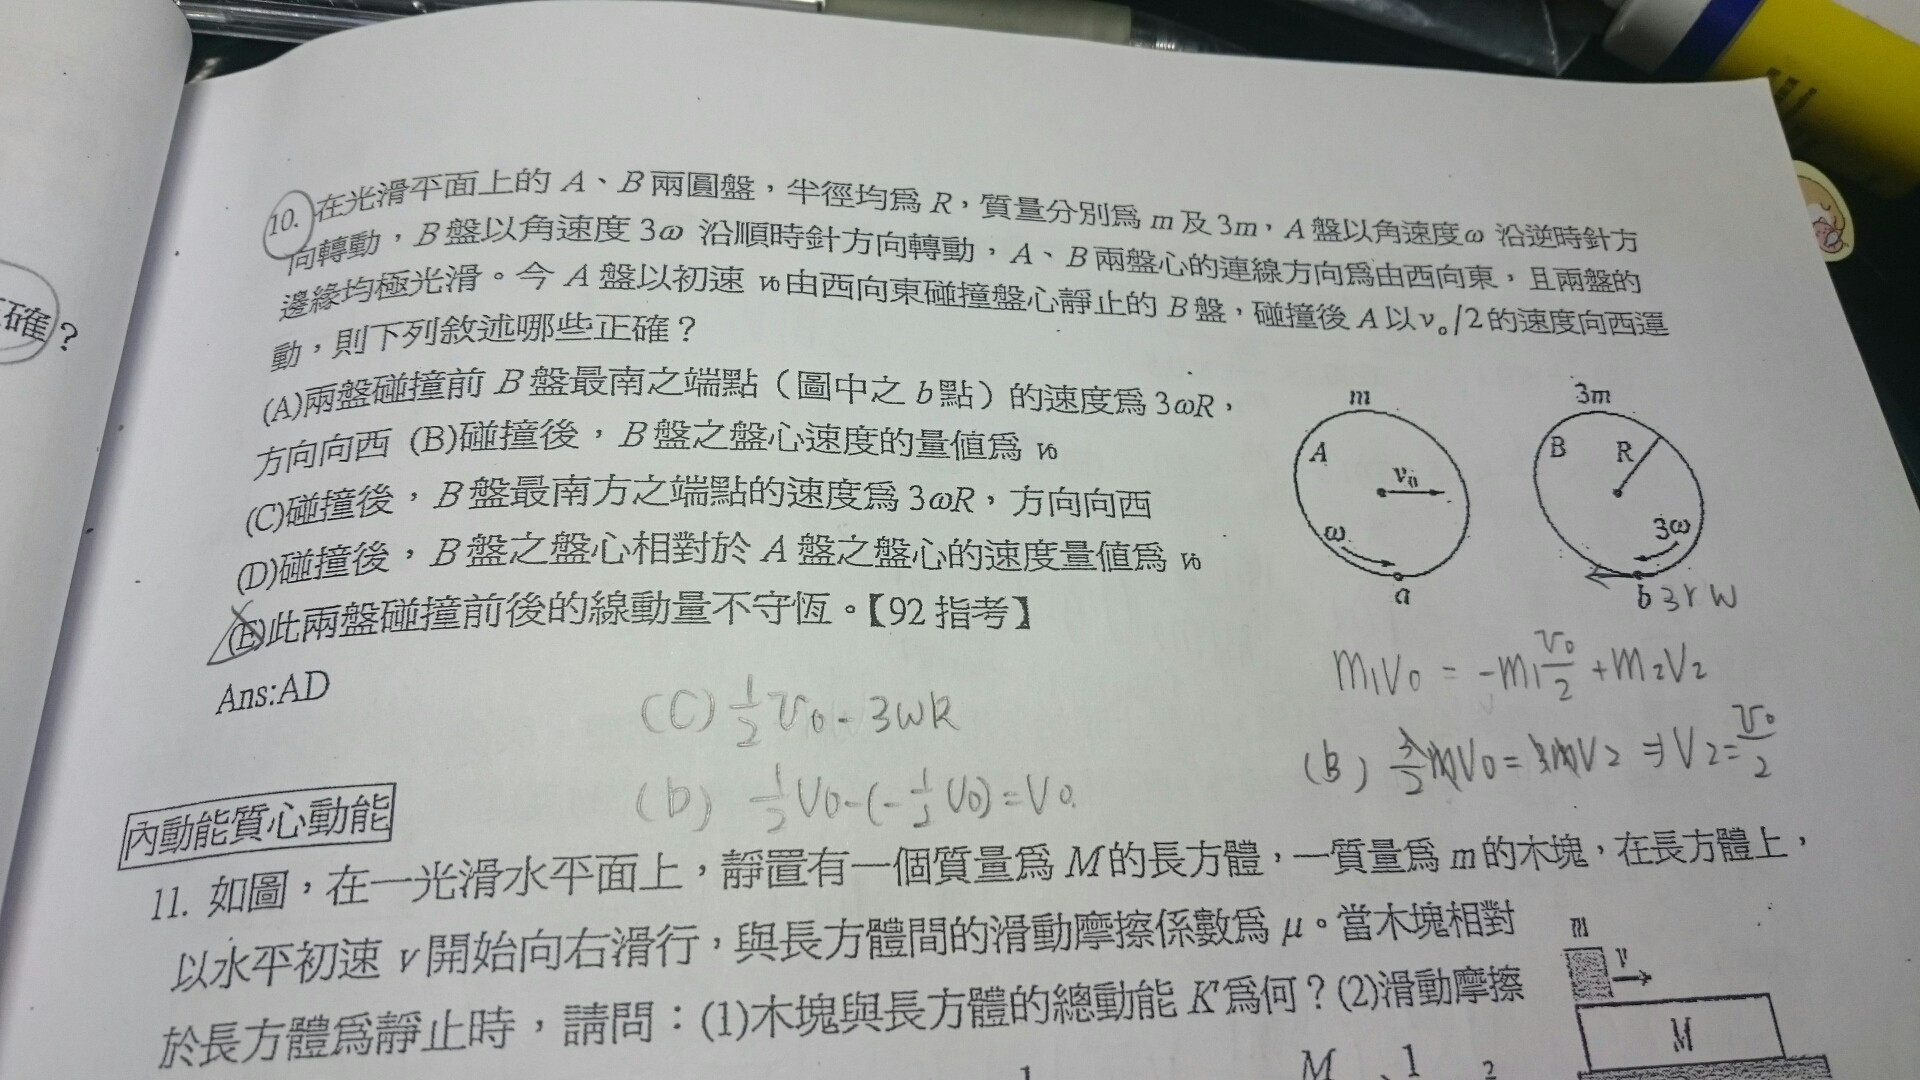 確？
10. 在光滑平面上的 A、B 兩圓盤，半徑均為 R，質量分別為 m 及 3m，A 盤以角速度ω 沿逆時針方
向轉動，B 盤以角速度 3ω 沿順時針方向轉動，A、B 兩盤心的連線方向為由西向東，且兩盤的
邊緣均極光滑。今 A 盤以初速 v₀由西向東碰撞盤心靜止的 B 盤，碰撞後 A 以 v₀/2 的速度向西運
動，則下列敘述哪些正確？
(A)兩盤碰撞前 B 盤最南之端點（圖中之 b 點）的速度為 3ωR，
方向向西 (B)碰撞後，B 盤之盤心速度的量值為 v₀
(C)碰撞後，B 盤最南方之端點的速度為 3ωR，方向向西
(D)碰撞後，B 盤之盤心相對於 A 盤之盤心的速度量值為 v₀
(E)此兩盤碰撞前後的線動量不守恆。【92 指考】
Ans:AD
m
A
v₀
ω
a
3m
B
R
3ω
b 3rw
m₁v₀ = -m₁v₀/2 + m₂v₂
(B) 3/2 mv₀ = 3mv₂ ⇒ v₂ = v₀/2
(C) 1/2 v₀ - 3wR
(D) 1/2 v₀ - (-1/2 v₀) = v₀
內動能質心動能
11. 如圖，在一光滑水平面上，靜置有一個質量為 M 的長方體，一質量為 m 的木塊，在長方體上，
以水平初速 v 開始向右滑行，與長方體間的滑動摩擦係數為 μ。當木塊相對
於長方體為靜止時，請問：(1)木塊與長方體的總動能 K 為何？(2)滑動摩擦
m
v
M
M 1 2